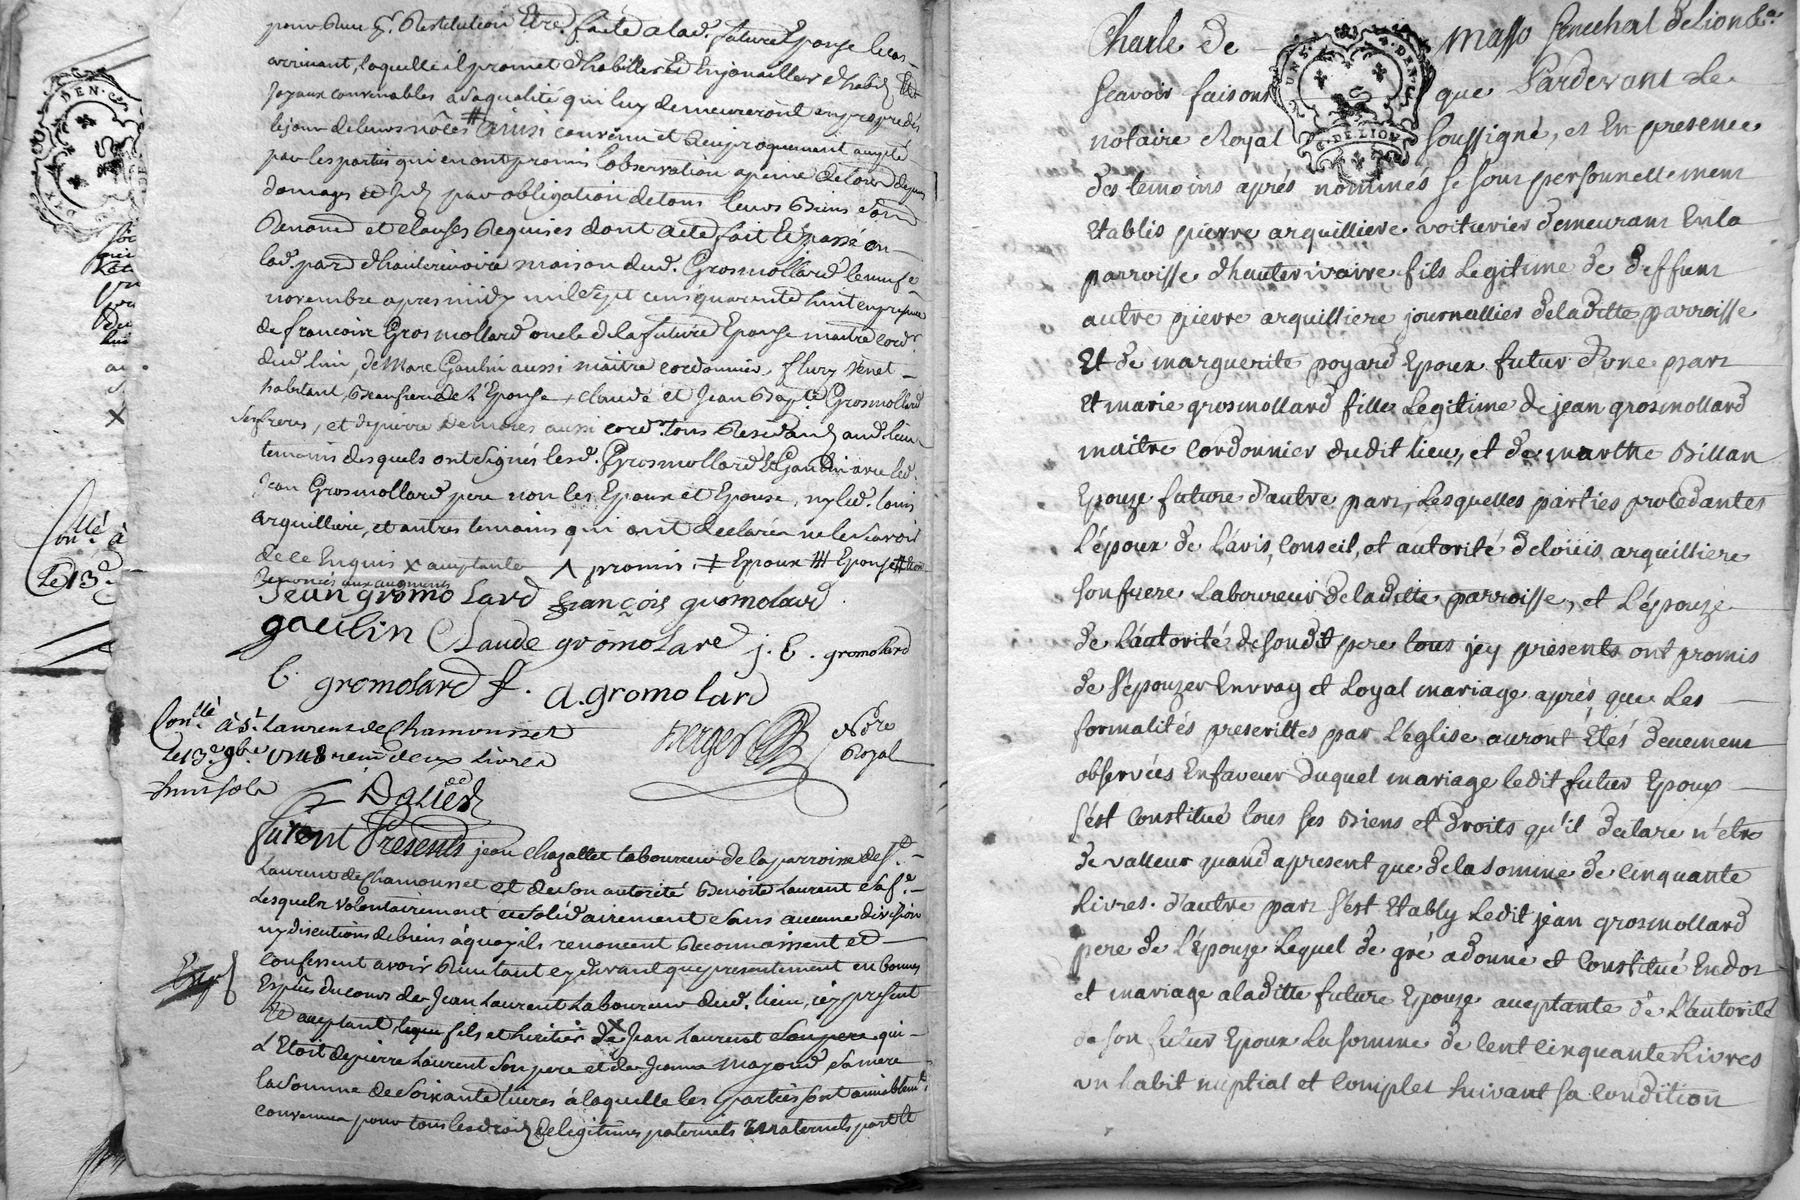 pour Reun et Restitution Etre faite a lad. future Epouse le cas
arrivant, laquelle il promet d'habiller et Enjouailler d'habits et
joyaux convenables a sa qualité qui luy demeureront en propre dés
le jour de leurs nôces # ainsi convenu et Reciproquement accepté
par les parties qui en ont promis l'observation a peine de tous depens
domages et par obligation de tous leurs Biens
Renoncé et clauses Requises dont acte fait et passé en
lad. par d'hauterivoire maison dud. Grosmollard le neufe
novembre apres midy mil sept cens quarente huit en presence
de francoix Grosmollard oncle de la future Epouse maitre cord.r
dud. lieu, de Marc Gaulin aussi maitre cordonnier, flury venet
habitant, Beaufrere de l'Epouse, claude et Jean Bapt.e Grosmollard
ses freres, et dpierre aussi cord.r tous Residans aud. lieu
temoins desquels ont signés lesd. Grosmollard et Gaulin avec led.
Jean Grosmollard pere non les Epoux et Epouse, ny led. louis
arquilliere, et autres temoins qui ont declarés ne le scavoir
de ce Enquis x acceptante ^ promis ‡ Epoux ## Epouse
Renonces aux augments
Jean gromolard François gromolard
gaulin Claude gromolard j. B. gromolard
C. gromolard f. a. gromolard
Con.llé à S.t Laurent de Chamousset Berger Nore
Le 13.e 9bre 1748 deux Livres Royal
huit sols
Dalier
Con.llé à
Le 13.e
Furent Presents jean chazallet laboureur de la parroisse de S.t
Laurent de Chamousset et de son autorité Benoite Laurent sa f.e
Lesquels volontairement et solidairement sans aucune division
ny discution de biens à quoy ils renoncent Reconnoissent et
confessent avoir Reus tant cy devant que presentement en bonnes
Espèces du cours de Jean Laurent Laboureur dud. lieu, icy present
Et acceptant fils et heritier de x Jean Laurent son pere qui
L'Etoit de pierre Laurent son pere et de Jeanne mayoud sa mere
la somme de soixante livres à laquelle les parties sont amiablement
convenues pour tous les droits de legitimes paternels maternels part et
Charle de Masso Senechal de Lion &a
Scavoir faisons que Pardevant Le
notaire Royal soussigné, et En presence
des temoins aprés nommés se sont personnellement
Etablis pierre arquilliere voiturier demeurant En la
parroisse d'hauterivoire fils Legitime de deffunt
autre pierre arquilliere journallier de la ditte parroisse
Et de marguerite poyard Epoux futur d'une part
Et marie grosmollard fille Legitime de jean grosmollard
maitre Cordonnier dudit lieu, et de marthe Billan
Epouze future d'autre part, Lesquelles parties procedantes
L'époux de L'avis, Conseil, et autorité de loüis arquilliere
son frere Laboureur de la ditte parroisse, et L'épouze
de L'autorité de son dit pere tous jcy présents ont promis
de S'épouzer En vray et Loyal mariage aprés que Les
formalités prescrittes par L'église auront Etés deuement
observées En faveur duquel mariage ledit futur Epoux
s'est Constitué tous ses Biens et droits qu'il declare n'etre
de valleur quand a present que de la somme de Cinquante
Livres. d'autre part S'est Etably Ledit jean grosmollard
pere de L'épouze Lequel de gré a donné et Constitué En dot
et mariage a la ditte future Epouze acceptante de L'autorité
de son futur Epoux La somme de Cent Cinquante Livres
un habit nuptial et Complet suivant sa Condition